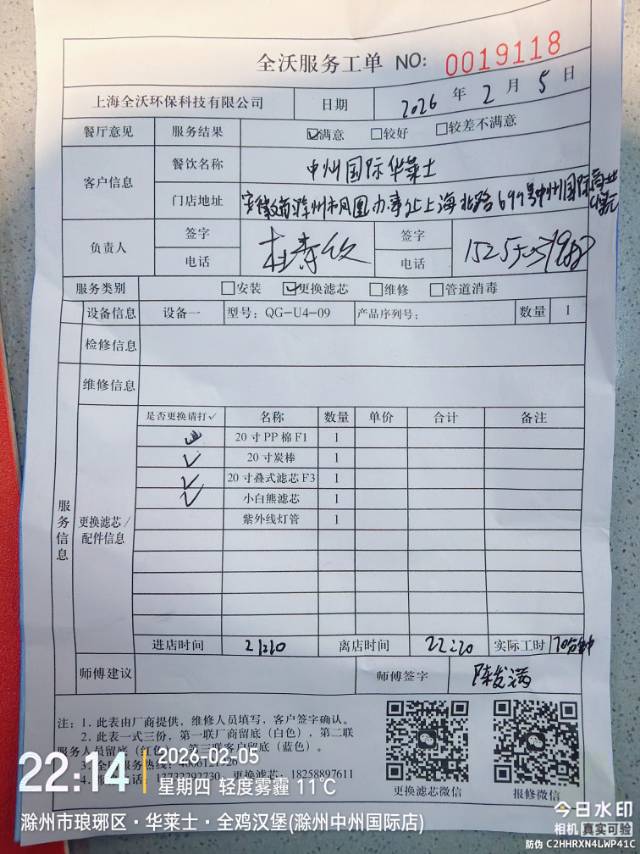 全沃服务工单 NO: 0019118
上海全沃环保科技有限公司 日期 2026 年 2 月 5 日
餐厅意见 服务结果 ☑满意 □较好 □较差不满意
客户信息 餐饮名称 中州国际华莱士
门店地址 安徽省滁州市凤凰办事处上海北路699号中州国际商业
负责人 签字 签字
电话 电话
服务类别 □安装 ☑更换滤芯 □维修 □管道消毒
服务信息
设备信息 设备一 型号: QG-U4-09 产品序列号: 数量 1
检修信息
维修信息
更换滤芯/配件信息
是否更换请打✓ 名称 数量 单价 合计 备注
✓ 20寸PP棉F1 1
✓ 20寸炭棒 1
✓ 20寸叠式滤芯F3 1
✓ 小白熊滤芯 1
紫外线灯管 1
进店时间 21:10 离店时间 22:20 实际工时 70分钟
师傅建议 师傅签字
注: 1. 此表由厂商提供, 维修人员填写, 客户签字确认。
2. 此表一式三份, 第一联厂商留底 (白色), 第二联
服务人员留底 (红色), 第三联客户留底 (蓝色)。
更换滤芯: 18258897611
更换滤芯微信 报修微信
22:14 2026-02-05
星期四 轻度雾霾 11℃
滁州市琅琊区·华莱士·全鸡汉堡(滁州中州国际店)
今日水印
相机 真实可验
防伪 C2HHRXN4LWP41C